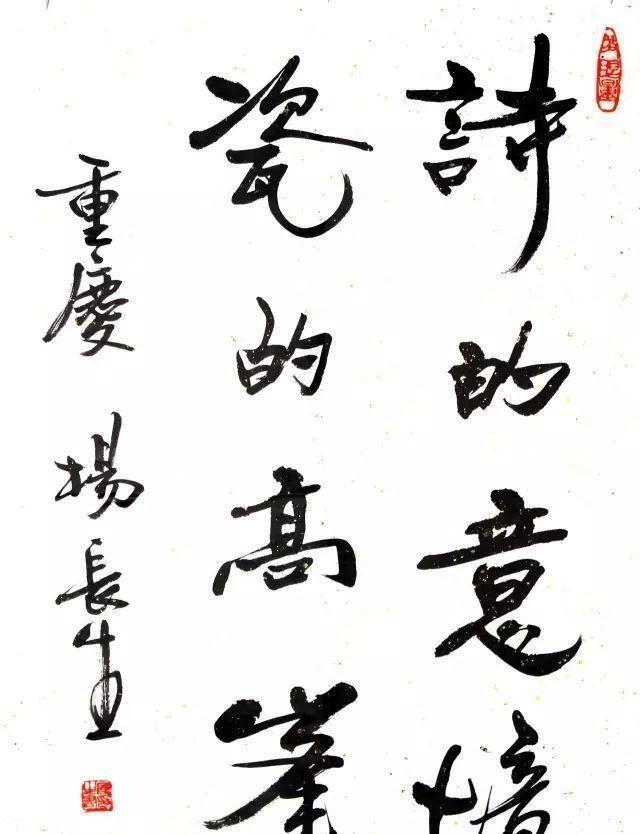 詩的意境
瓷的高峯
重慶 楊長生